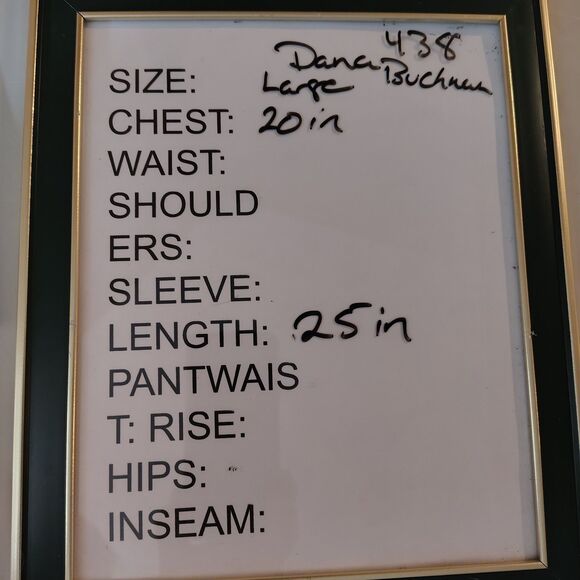 438
Dana Buchman
SIZE: Large
CHEST: 20 in
WAIST:
SHOULD
ERS:
SLEEVE:
LENGTH: 25 in
PANTWAIS
T: RISE:
HIPS:
INSEAM: